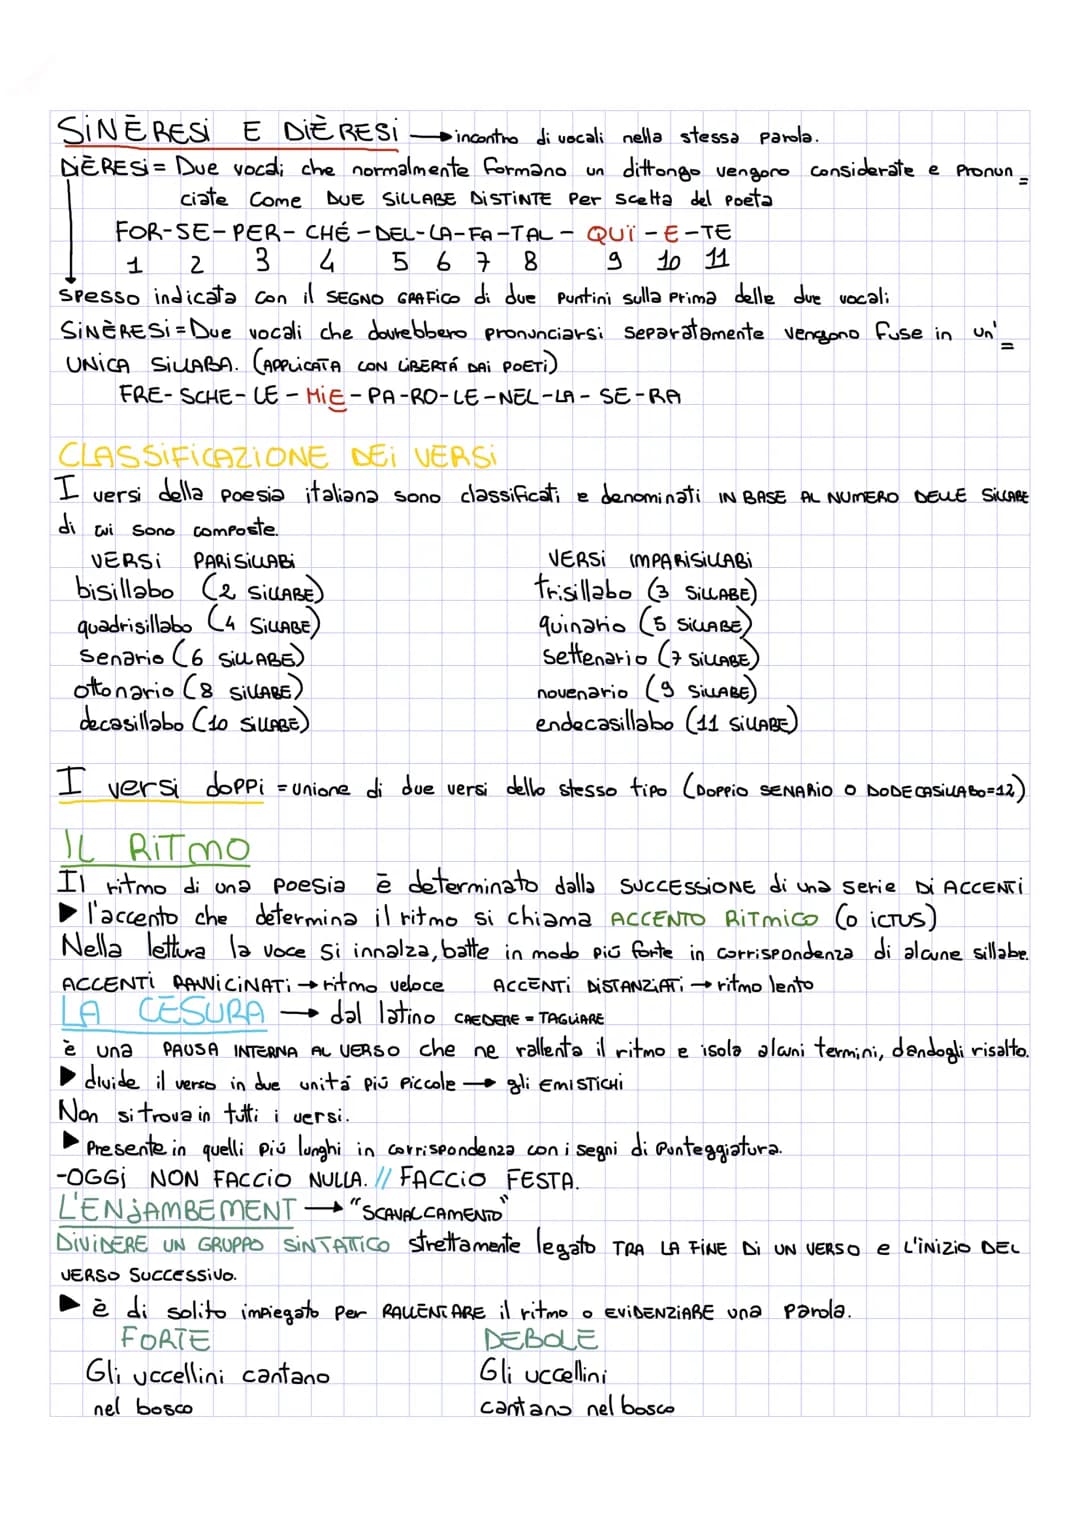 SINÈRESI E DIÈRESI → incontro di vocali nella stessa parola.
DIÈRESI = Due vocali che normalmente formano un dittongo vengono considerate e pronun=
ciate come DUE SILLABE DISTINTE per scelta del poeta
FOR-SE-PER-CHÉ-DEL-LA-FA-TAL-QUÏ-E-TE
1 2 3 4 5 6 7 8 9 10 11
spesso indicata con il SEGNO GRAFICO di due puntini sulla prima delle due vocali
SINÈRESI = Due vocali che dovrebbero pronunciarsi separatamente vengono fuse in un'=
UNICA SILLABA. (APPLICATA CON LIBERTÁ DAI POETI)
FRE-SCHE-LE-MIE-PA-RO-LE-NEL-LA-SE-RA
CLASSIFICAZIONE DEI VERSI
I versi della poesia italiana sono classificati e denominati IN BASE AL NUMERO DELLE SILLABE
di cui sono composte.
VERSI PARISILLABI
bisillabo (2 SILLABE)
quadrisillabo (4 SILLABE)
senario (6 SILLABE)
ottonario (8 SILLABE)
decasillabo (10 SILLABE)
VERSI IMPARISILLABI
trisillabo (3 SILLABE)
quinario (5 SILLABE)
settenario (7 SILLABE)
novenario (9 SILLABE)
endecasillabo (11 SILLABE)
I versi doppi = unione di due versi dello stesso tipo (DOPPIO SENARIO O DODECASILLABO=12)
IL RITMO
Il ritmo di una poesia è determinato dalla SUCCESSIONE di una serie DI ACCENTI
▶ l'accento che determina il ritmo si chiama ACCENTO RITMICO (o ICTUS)
Nella lettura la voce si innalza, batte in modo piú forte in corrispondenza di alcune sillabe.
ACCENTI RAVVICINATI → ritmo veloce ACCENTI DISTANZIATI → ritmo lento
LA CESURA → dal latino CAEDERE = TAGLIARE
è una PAUSA INTERNA AL VERSO che ne rallenta il ritmo e isola alcuni termini, dandogli risalto.
▶ divide il verso in due unitá piú piccole → gli EMISTICHI
Non si trova in tutti i versi.
▶ Presente in quelli piú lunghi in corrispondenza con i segni di punteggiatura.
-OGGI NON FACCIO NULLA. // FACCIO FESTA.
L'ENJAMBEMENT → "SCAVALCAMENTO"
DIVIDERE UN GRUPPO SINTATTICO strettamente legato TRA LA FINE DI UN VERSO e L'INIZIO DEL
VERSO SUCCESSIVO.
▶ è di solito impiegato per RALLENTARE il ritmo o EVIDENZIARE una parola.
FORTE
Gli uccellini cantano
nel bosco
DEBOLE
Gli uccellini
cantano nel bosco